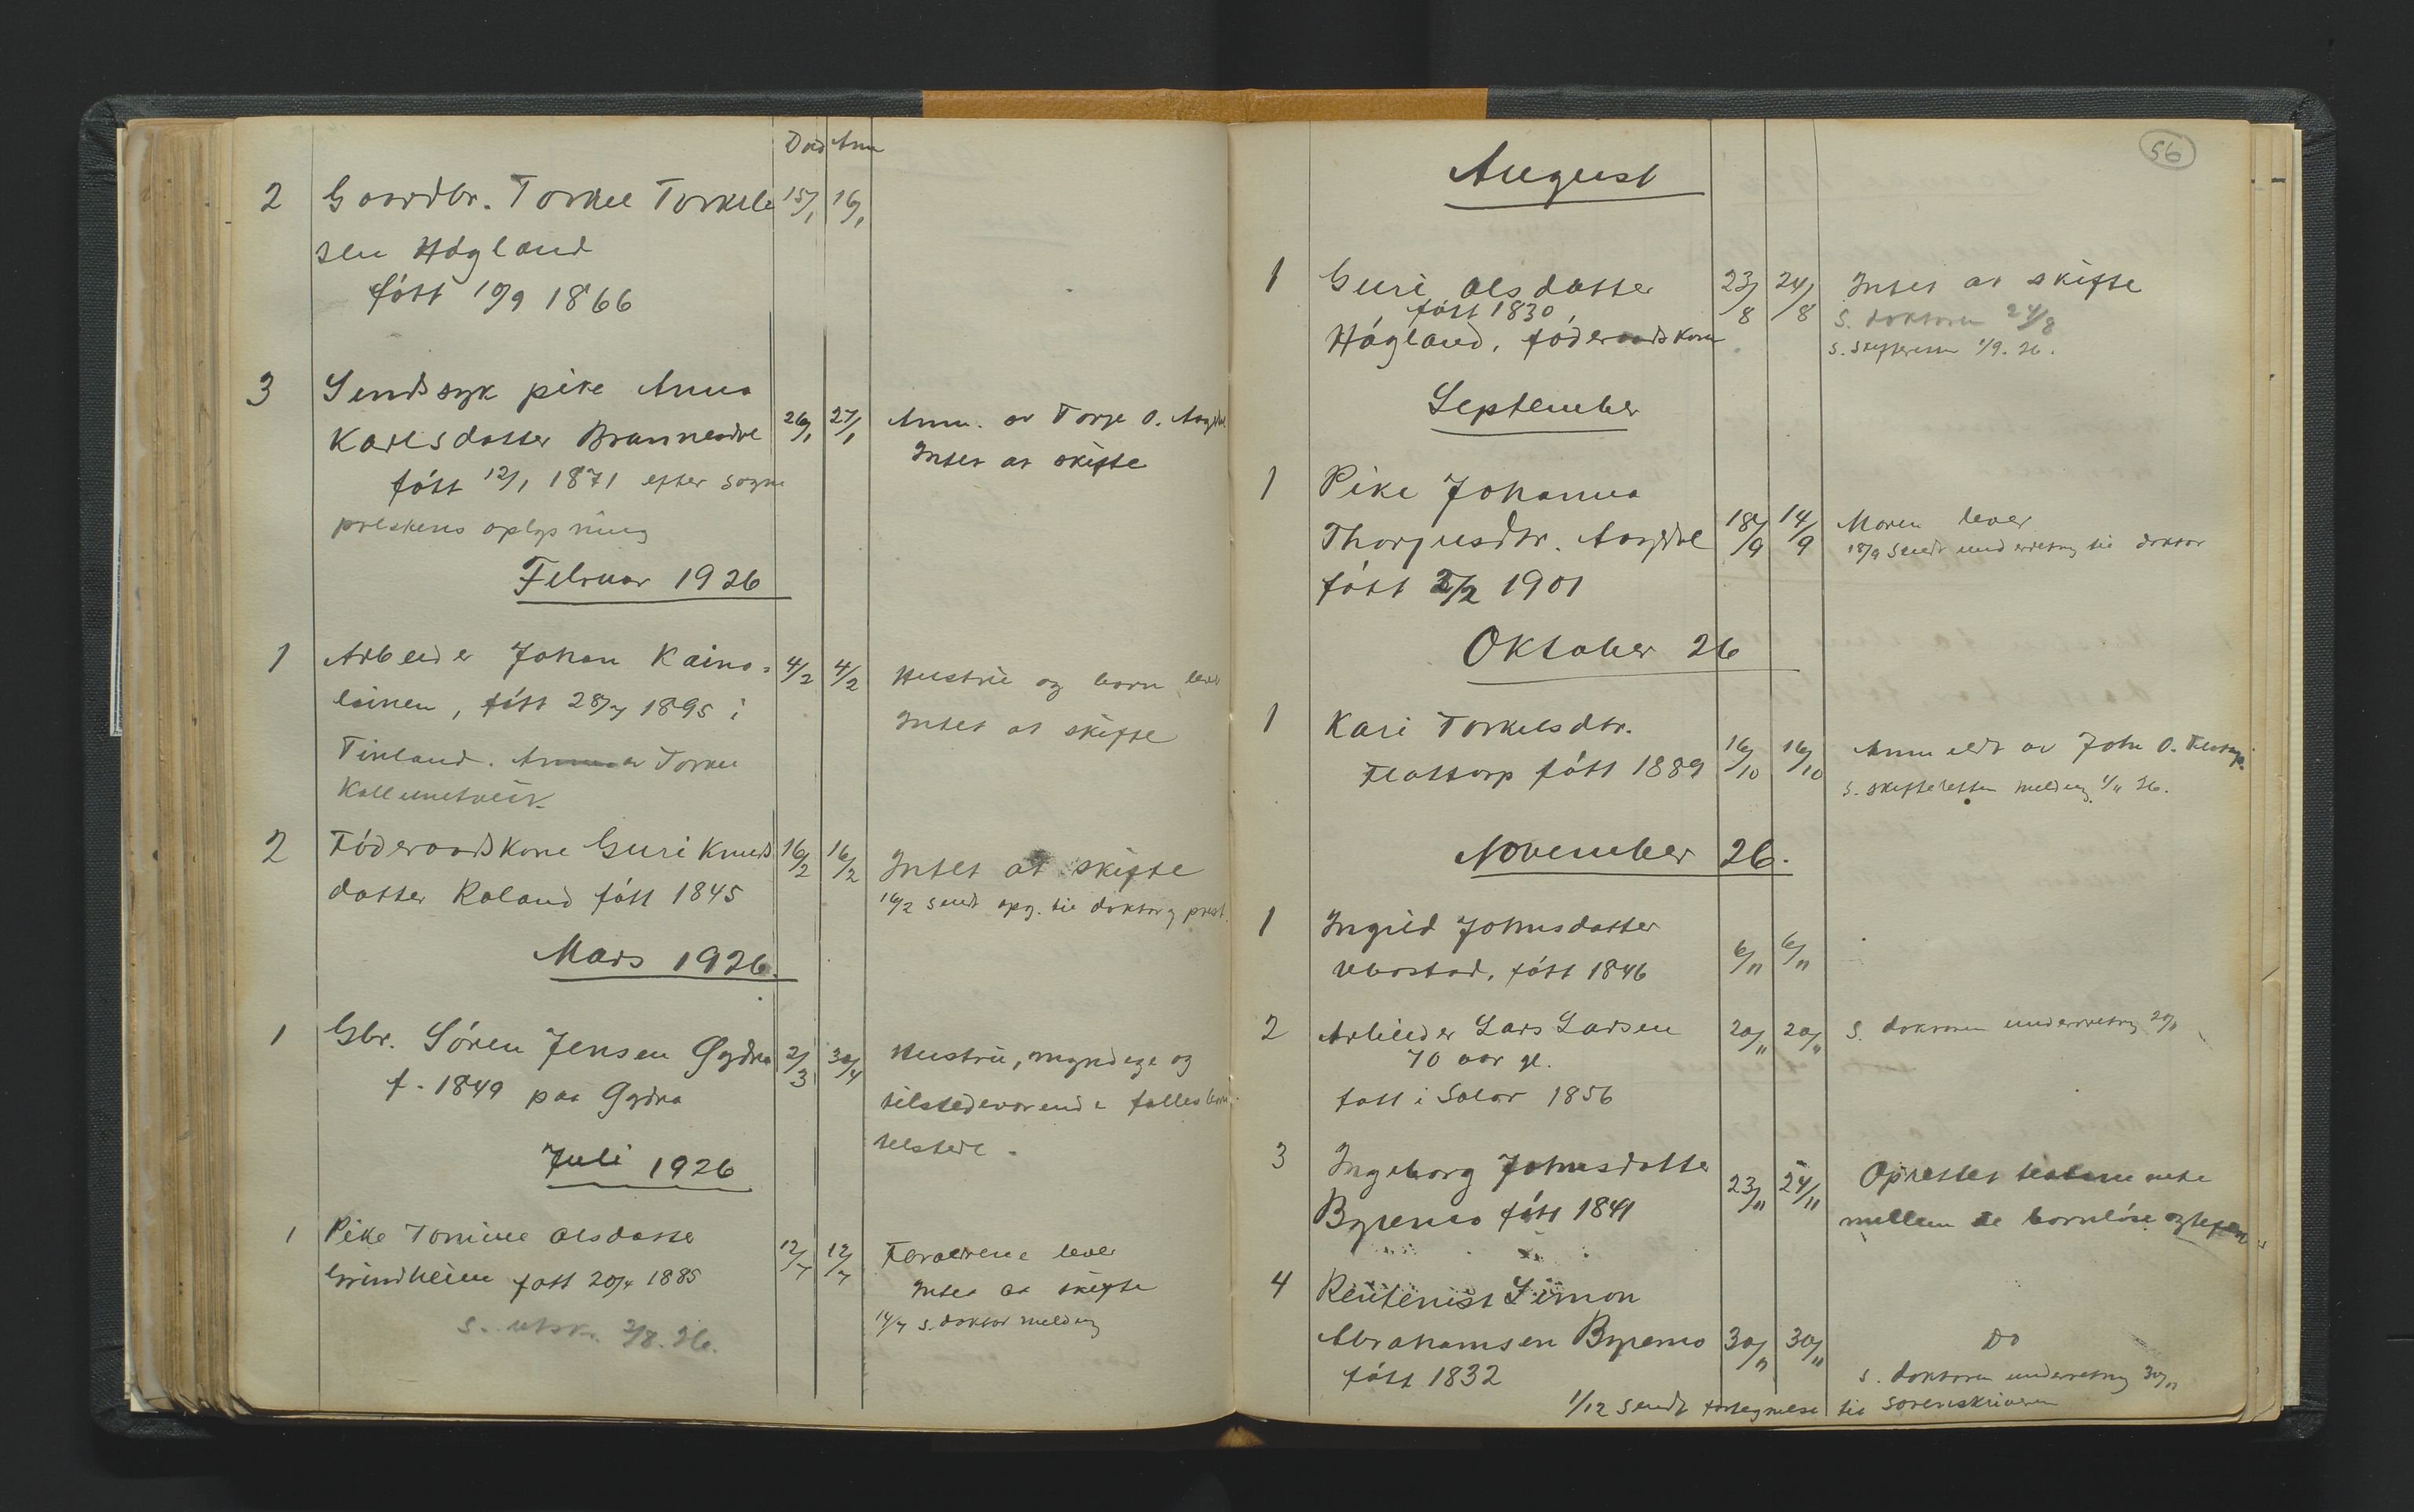 Død Anm
2 Gaardbr. Torkel Torkels 15/1 16/1
sen Høgland
født 10/9 1866
3 Sindssyk pike Anna
Karlsdatter Brunnesdal 26/1 27/1 Anm. av Torje O. Aagedal
født 12/1 1871 efter sogne Intet at skifte
prestens oplysning
Februar 1926
1 Arbeider Johan Kaino= 4/2 4/2 Hustru og barn lever
lainen, født 28/7 1895 i Intet at skifte
Finland. Torkel
2 Föderaadskone Guri Knuds 16/2 16/2 Intet at skifte
datter Røland født 1845 16/2 sendt opg. til doktor og prest.
Mars 1926.
1 Gbr. Sören Jensen Øydna 2/3 30/4 Hustru, myndige og
f. 1849 paa Øydna tilstedeværende fælles barn
tilstede.
Juli 1926
1 Pike Tomine Olsdatter 12/7 12/7 Forældrene lever
Grindheim født 20/4 1885 Intet at skifte
s. utskr. 2/8. 26. 14/7 s. doktor melding
56
August
1 Guri Olsdatter 23/8 24/8 Intet at skifte
født 1830 s. doktoren 24/8
Høgland, föderaadskone s. skifteretten 1/9. 26.
September
1 Pike Johanna
Thorjusdtr. Aagedal 18/9 14/9 Moren lever
18/9 sendt underretning til doktor
født 2/2 1901
Oktober 26
1 Kari Torkelsdtr. 16/10 16/10 Anmeldt av John O. Flottorp.
Flottorp født 1889 s. skifteretten melding 1/11 26.
November 26.
1 Ingrid Johnsdatter 6/11 6/11
Ubostad, født 1846
2 Arbeider Lars Larsen 20/11 20/11 s. doktoren underretning 20/11
70 aar gl.
født i Solør 1856
3 Ingeborg Johnsdatter 23/11 24/11 Oprettet testamente
Byremo født 1841 mellem de barnløse egtefolk
4 Rentenist Simon
Abrahamsen Byremo 30/11 30/11 Do
født 1832 s. doktoren underretning 30/11
1/12 sendt fortegnelse til sorenskriveren